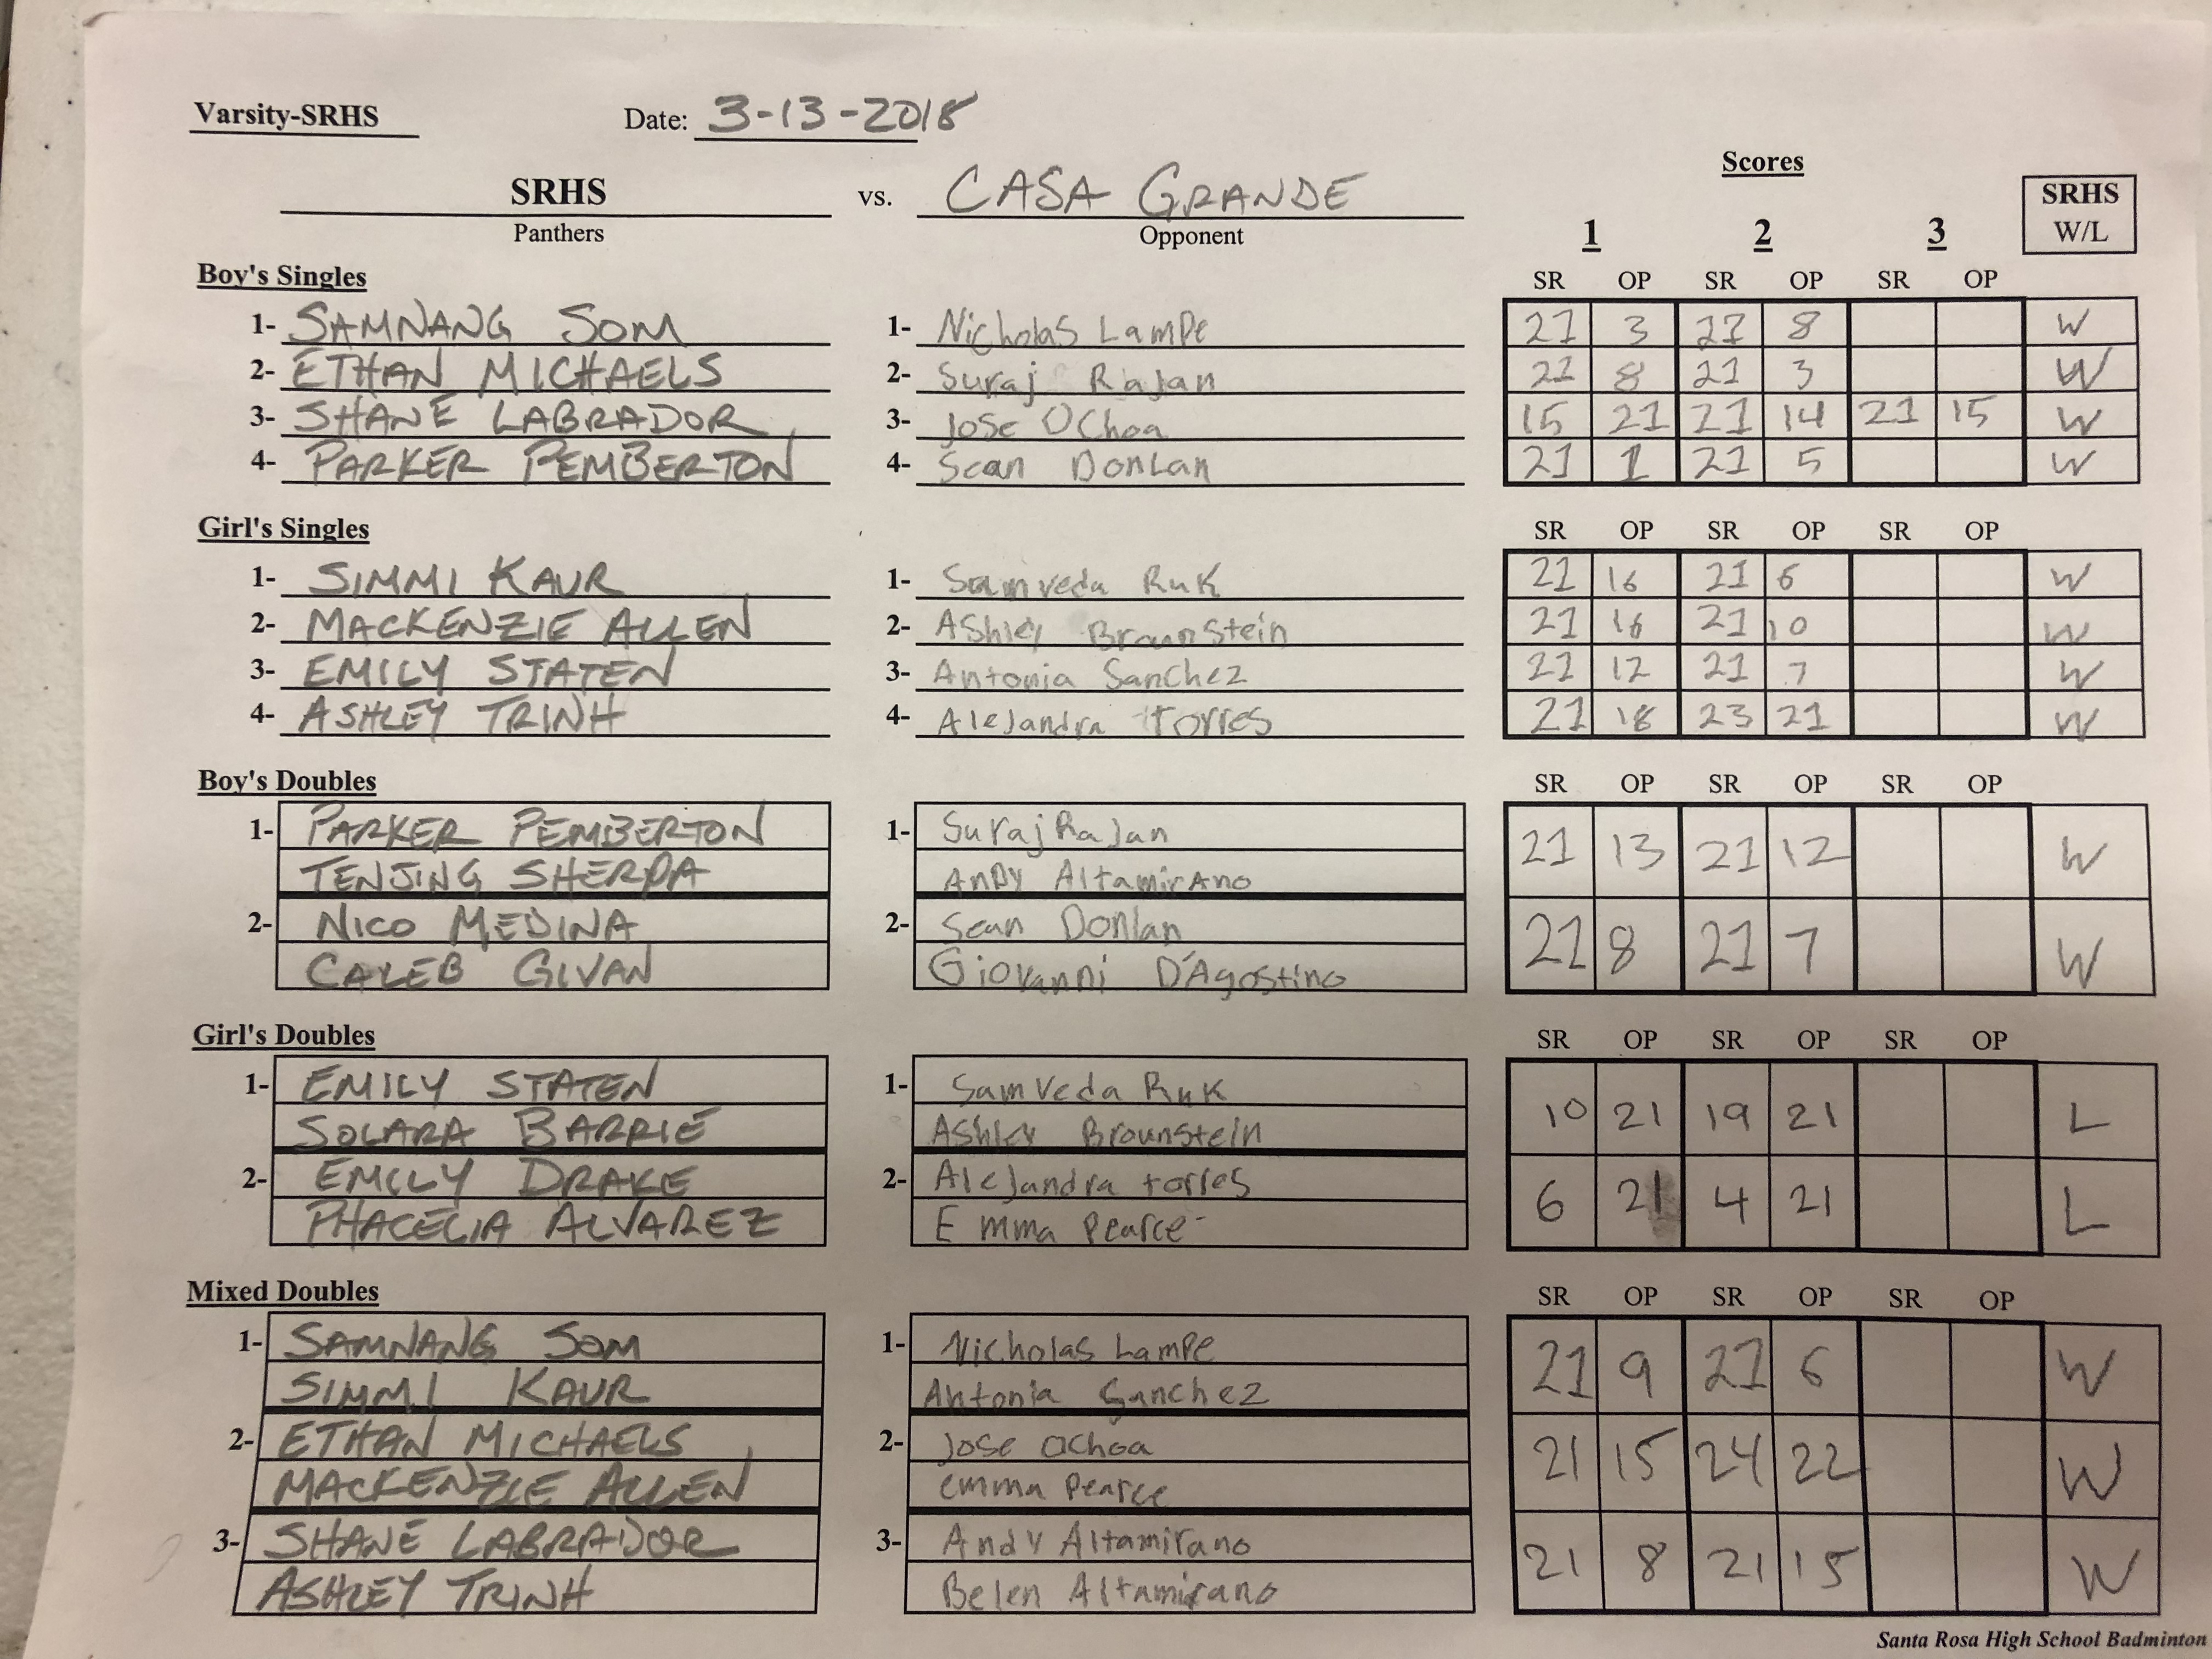 Varsity-SRHS Date: 3-13-2018
Scores
SRHS vs. CASA GRANDE SRHS
Panthers Opponent 1 2 3 W/L
Boy's Singles SR OP SR OP SR OP
1- SAMNANG SOM 1- Nicholas Lampe 21 3 21 8 W
2- ETHAN MICHAELS 2- Suraj Rajan 21 8 21 3 W
3- SHANE LABRADOR 3- Jose Ochoa 15 21 21 14 21 15 W
4- PARKER PEMBERTON 4- Sean Donlan 21 1 21 5 W
Girl's Singles SR OP SR OP SR OP
1- SIMMI KAUR 1- Samveda Ruk 21 16 21 6 W
2- MACKENZIE ALLEN 2- Ashley Braunstein 21 16 21 10 W
3- EMILY STATEN 3- Antonia Sanchez 21 12 21 7 W
4- ASHLEY TRINH 4- Alejandra Torres 21 18 23 21 W
Boy's Doubles SR OP SR OP SR OP
1- PARKER PEMBERTON 1- Suraj Rajan 21 13 21 12 W
TENJING SHERPA Andy Altamirano
2- NICO MEDINA 2- Sean Donlan 21 8 21 7 W
CALEB GIVAN Giovanni D'Agostino
Girl's Doubles SR OP SR OP SR OP
1- EMILY STATEN 1- Samveda Ruk 10 21 19 21 L
SOLARA BARRIE Ashley Brounstein
2- EMILY DRAKE 2- Alejandra torres 6 21 4 21 L
PHACELIA ALVAREZ Emma Pearce
Mixed Doubles SR OP SR OP SR OP
1- SAMNANG SOM 1- Nicholas Lampe 21 9 21 6 W
SIMMI KAUR Antonia Sanchez
2- ETHAN MICHAELS 2- Jose Ochoa 21 15 24 22 W
MACKENZIE ALLEN emma Pearce
3- SHANE LABRADOR 3- Andy Altamirano 21 8 21 15 W
ASHLEY TRINH Belen Altamirano
Santa Rosa High School Badminton